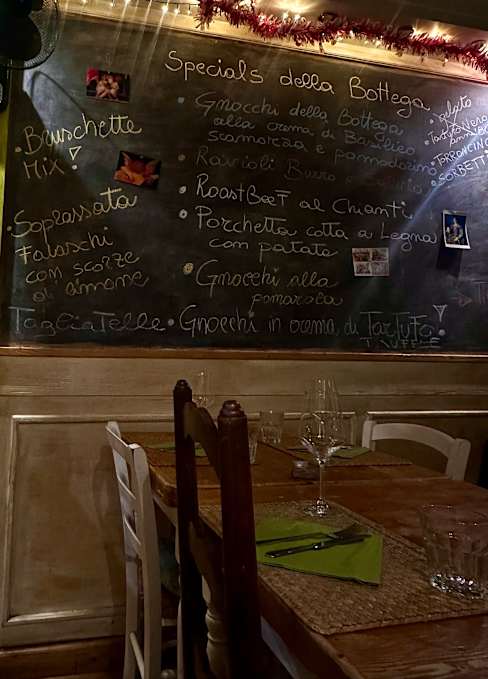 Specials della Bottega
Bruschette
Mix!
Soprassata
Falaschi
con scorze
di limone
Tagliatelle
Gnocchi della Bottega
alla crema di Basilico
scamorza e pomodorino
Ravioli Burro e
RoastBeeT al Chianti
Porchetta cotta a Legna
com patate
Gnocchi alla
pomarola
Gnocchi in crema di TarTuFo!
TRUFFLE
gelato
Tartufo Nero
Torroncino
SORBETTI